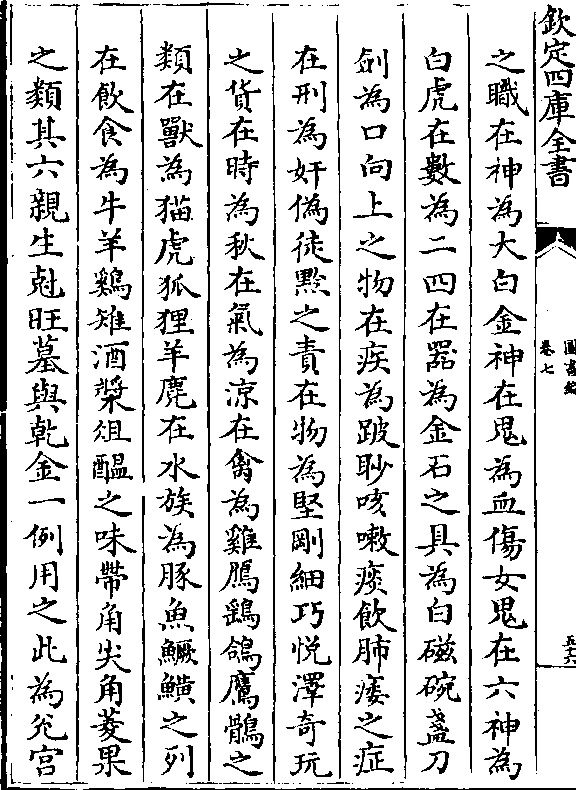 欽定四庫全書
圖書編
卷七
五十六
之職在神為大白金神在鬼為血傷女鬼在六神為
白虎在數為二四在器為金石之具為白磁碗盞刀
劍為口向上之物在疾為跛眇咳嗽痰飲肺痿之症
在刑為奸偽徒黥之責在物為堅剛細巧悅澤奇玩
之貨在時為秋在氣為涼在禽為雞鴈鵡鴿鷹鶻之
類在獸為猫虎狐狸羊麂在水族為豚魚鱖鱑之列
在飲食為牛羊鷄雉酒漿俎醖之味帶角尖角菱果
之類其六親生尅旺墓與乾金一例用之此為兊宫